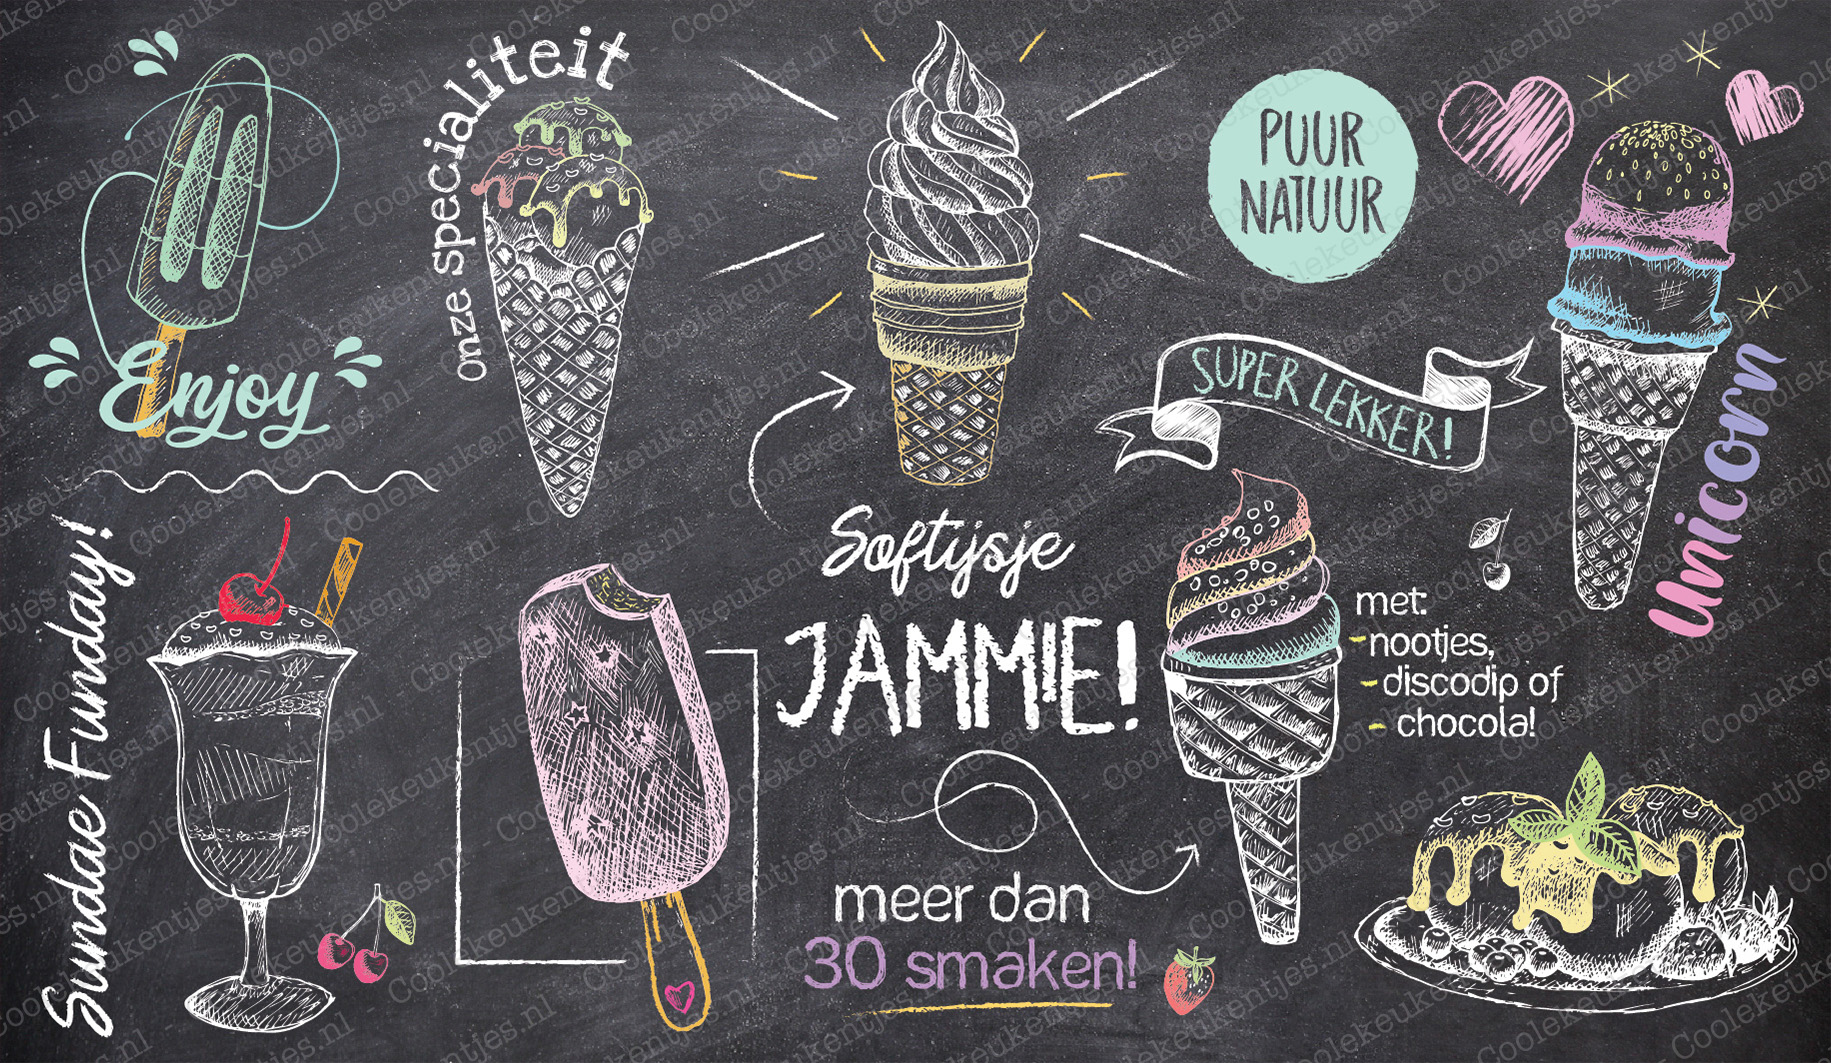 Enjoy
onze specialiteit
PUUR
NATUUR
SUPER LEKKER!
Unicorn
Sundae Funday!
Softijsje
JAMMIE!
met:
-nootjes,
-discodip of
- chocola!
meer dan
30 smaken!
Coolekeukentjes.nl